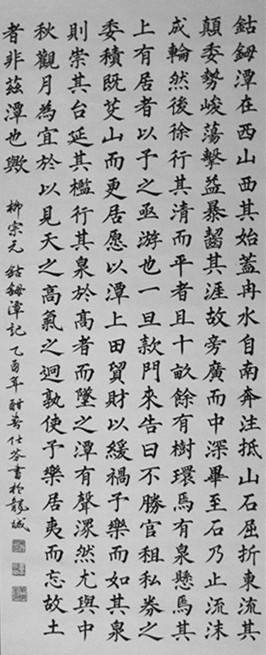 鈷鉧潭在西山西其始蓋冉水自南奔注抵山石屈折東流其
顛委勢峻蕩擊益暴齧其涯故旁廣而中深畢至石乃止流沫
成輪然後徐行其清而平者且十畝餘有樹環焉有泉懸焉其
上有居者以予之亟游也一旦款門來告曰不勝官租私券之
委積既芟山而更居愿以潭上田貿財以緩禍予樂而如其泉
則崇其台延其檻行其泉於高者而墜之潭有聲潀然尤與中
秋觀月為宜於以見天之高氣之迥孰使予樂居夷而忘故土
者非茲潭也歟
柳宗元 鈷鉧潭記 乙酉年仕岑書於龍城